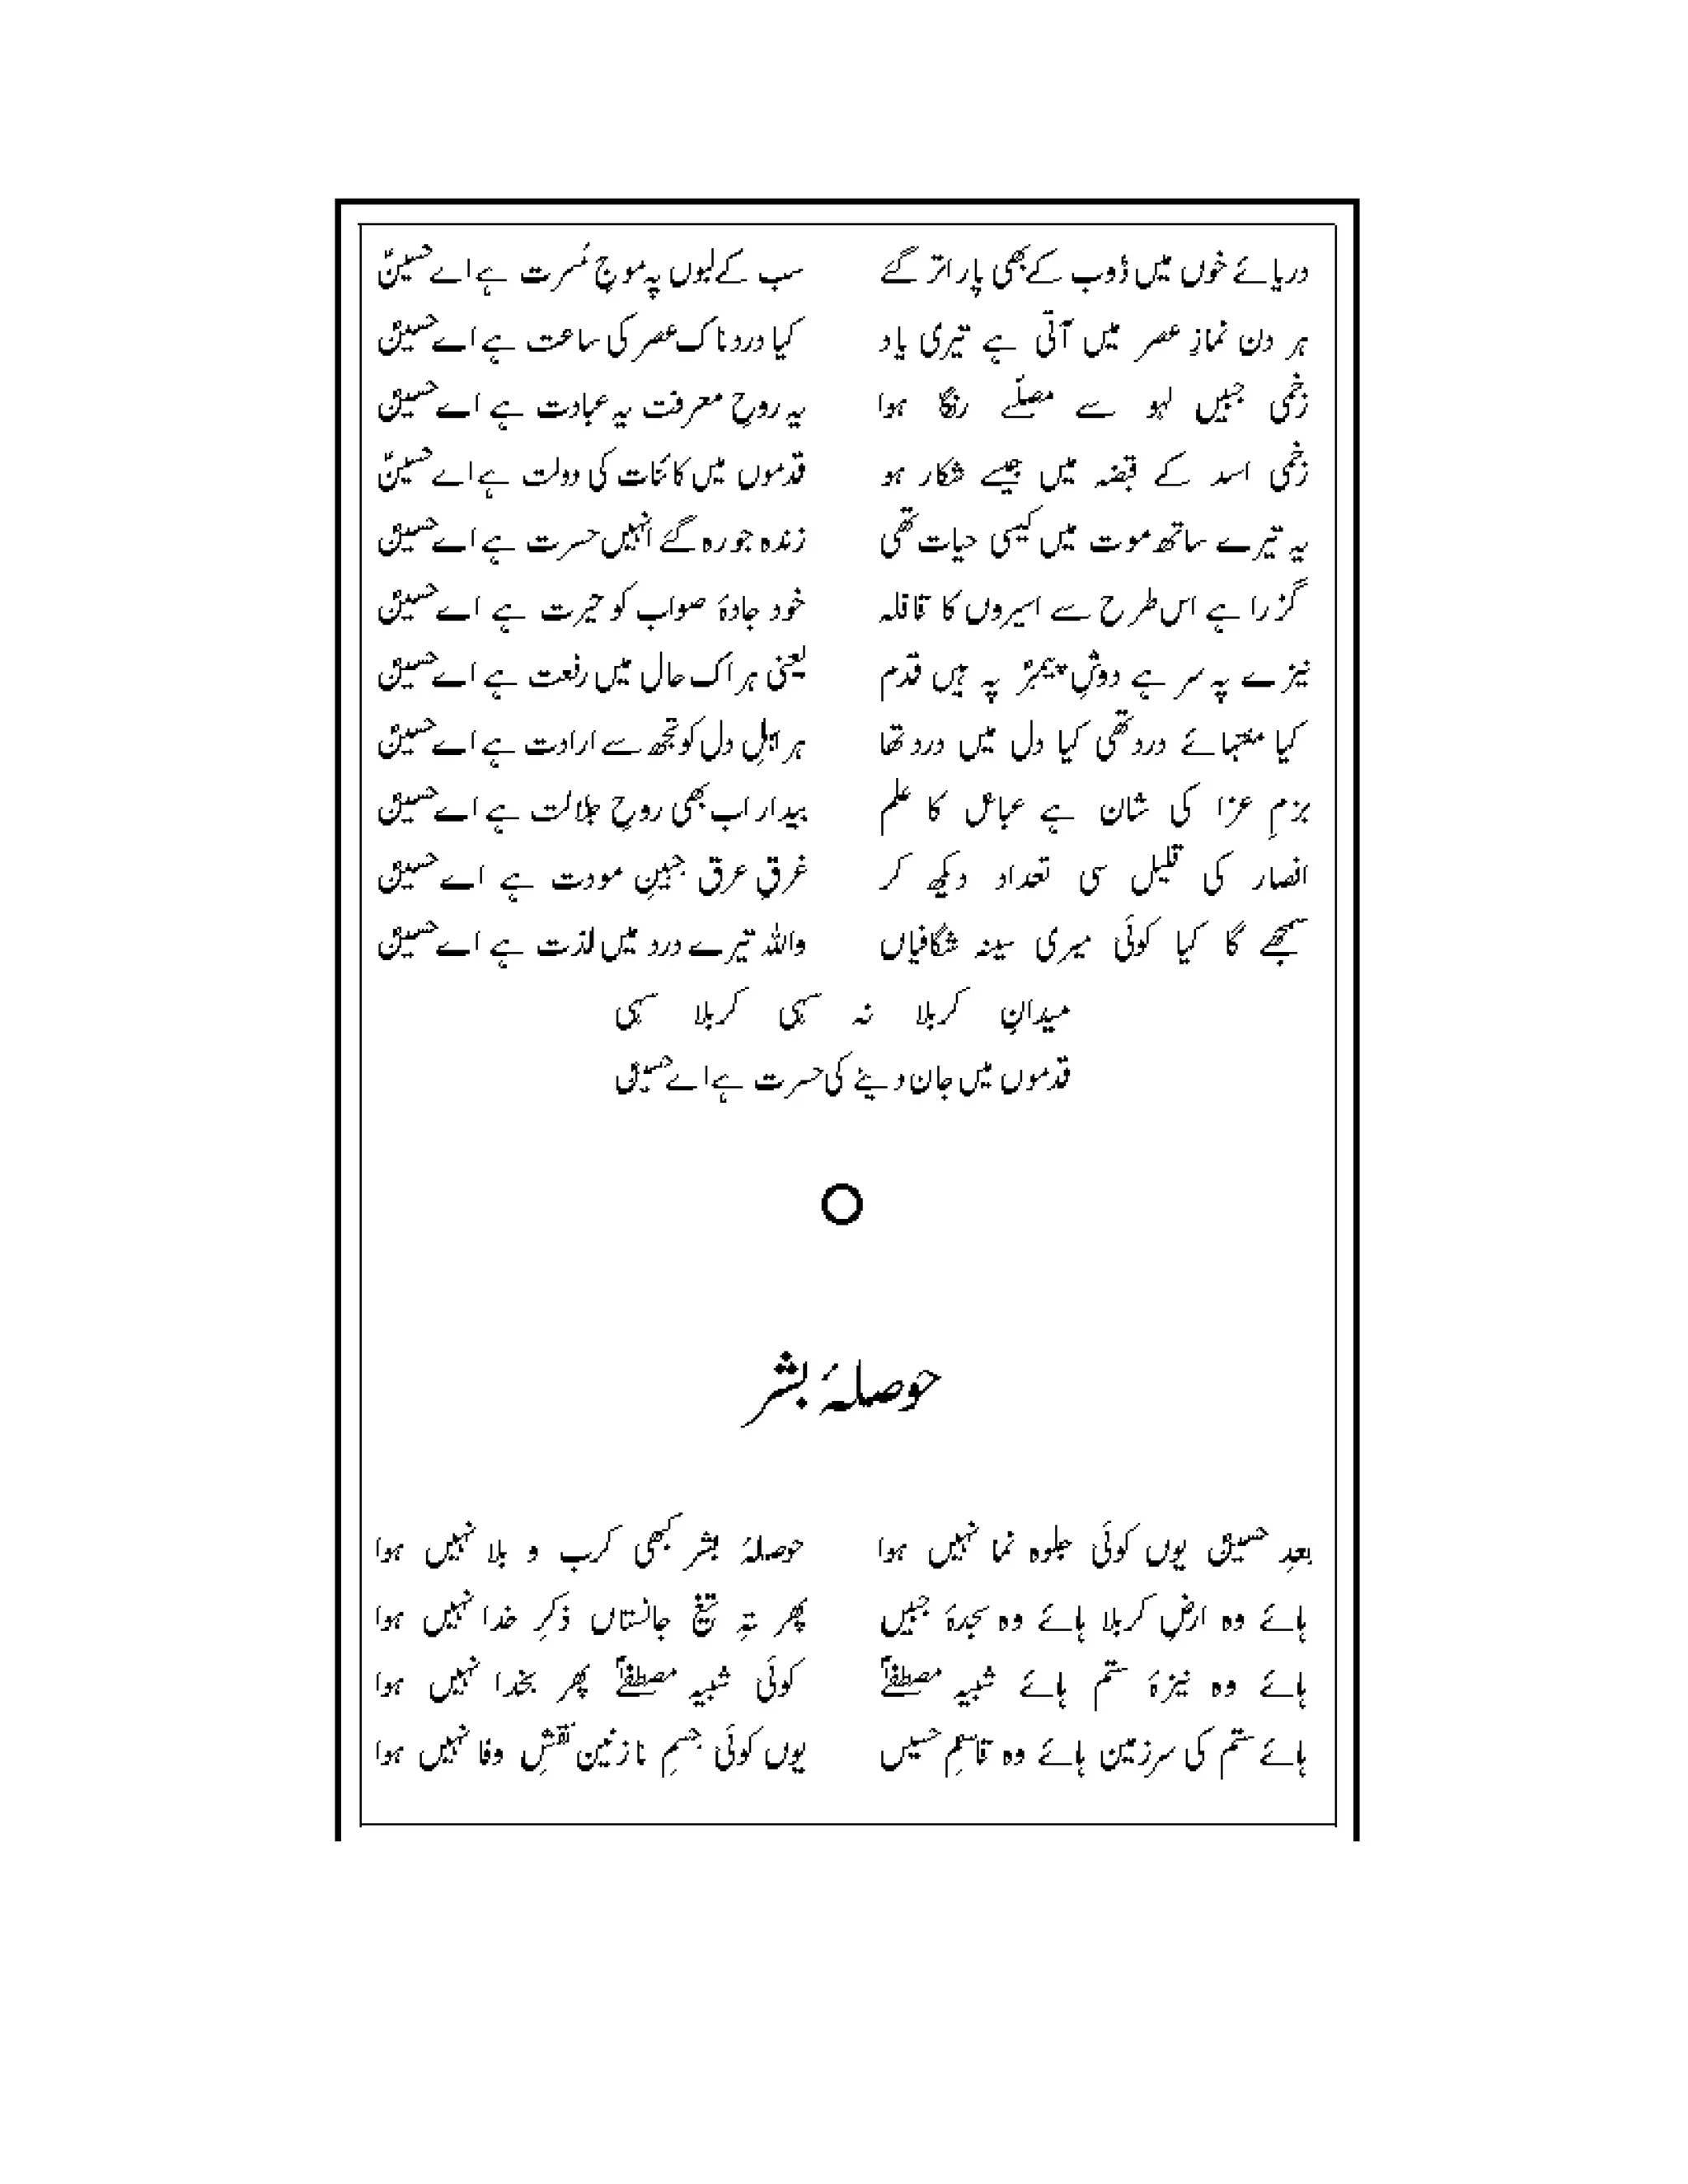 دریائے خوں میں ڈوب کے بھی پار اتر گئے سب کے لبوں پہ موجِ مُسرت ہے اے حسینؑ
ہر دن نمازِ عصر میں آتی ہے تیری یاد کیا درد ناک عصر کی ساعت ہے اے حسینؑ
زخمی جبیں لہو سے مصلّے رنگا ہوا یہ روحِ معرفت یہ عبادت ہے اے حسینؑ
زخمی اسد کے قبضہ میں جیسے شکار ہو قدموں میں کائنات کی دولت ہے اے حسینؑ
یہ تیرے ساتھ موت میں کیسی حیات تھی زندہ جو رہ گئے انہیں حسرت ہے اے حسینؑ
گزرا ہے اس طرح سے اسیروں کا قافلہ خود جادۂ صواب کو حیرت ہے اے حسینؑ
نیزے پہ سر ہے دوشِ پیمبرؐ پہ ہیں قدم یعنی ہر اک حال میں رفعت ہے اے حسینؑ
کیا منتہائے درد تھی کیا دل میں درد تھا ہر اہلِ دل کو تجھ سے ارادت ہے اے حسینؑ
بزمِ عزا کی شان ہے عباسؑ کا علم بیدار اب بھی روحِ جلالت ہے اے حسینؑ
انصار کی قلیل سی تعداد دیکھ کر غرقِ عرق جبینِ مودت ہے اے حسینؑ
سمجھے گا کیا کوئی میری سینہ شگافیاں واللہ تیرے درد میں لذت ہے اے حسینؑ
میدانِ کربلا نہ سہی کربلا سہی
قدموں میں جان دینے کی حسرت ہے اے حسینؑ
حوصلۂ بشر
بعدِ حسینؑ یوں کوئی جلوہ نما نہیں ہوا حوصلۂ بشر کبھی کرب و بلا نہیں ہوا
ہائے وہ ارضِ کربلا ہائے وہ سجدۂ جبیں پھر تہِ تیغ جانستاں ذکرِ خدا نہیں ہوا
ہائے وہ نیزۂ ستم ہائے شبیہِ مصطفےٰؐ کوئی شبیہِ مصطفےٰؐ پھر بخدا نہیں ہوا
ہائے ستم کی سرزمین ہائے وہ قاسمِ حسیں یوں کوئی جسمِ نازنین نقشِ وفا نہیں ہوا